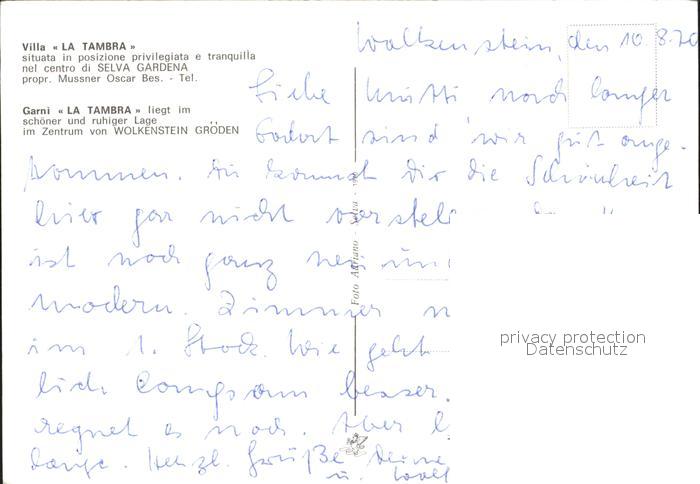 Villa « LA TAMBRA »
situata in posizione privilegiata e tranquilla
nel centro di SELVA GARDENA
propr. Mussner Oscar Bes. - Tel.
Garni « LA TAMBRA » liegt im
schöner und ruhiger Lage
im Zentrum von WOLKENSTEIN GRÖDEN
Wolkenstein, den 10.8.70
Liebe Mutti nach langer
sind wir gut ange-
kommen. Du kannst Dir die Schönheit
hier gar nicht vorstell
ist noch ganz neu un
modern. Zimmer N
im 1. Stock. Wie geht
lich langsam besser.
regnet es noch. Aber
lange. Herzl. Grüße Deine
u.
Foto Adriano - Selva
privacy protection
Datenschutz